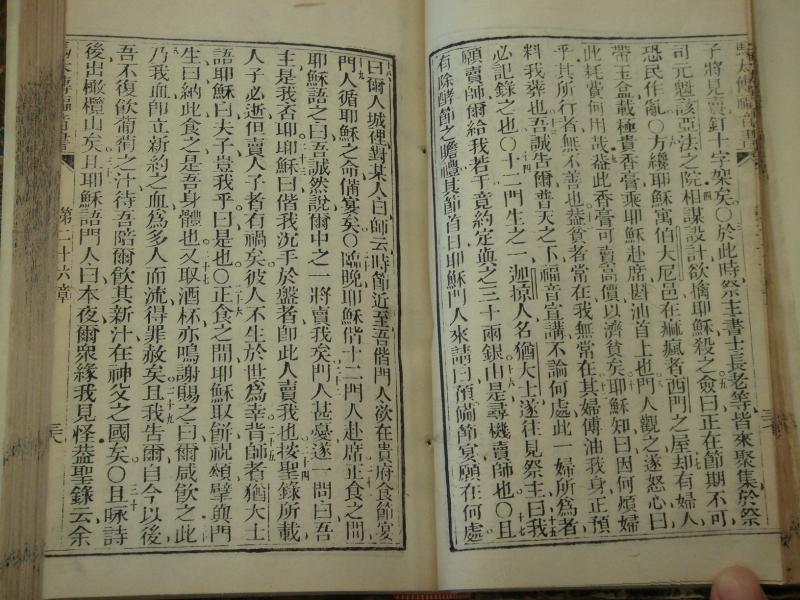 子將見賣釘十字架矣○於此時祭主書士長老等皆來聚集於祭
司元魁該亞法之院相謀設計欲擒耶穌殺之僉曰正在節期不可
恐民作亂○方纔耶穌寓伯大尼邑在痲瘋者西門之屋却有婦人
帶玉盒載極貴香膏乘耶穌赴席斟油首上也門人觀之遂怒心曰
此耗費何用哉蓋此香膏可賣高價以濟貧矣耶穌知曰因何煩婦
乎其所行者無不善也蓋貧者常在我無常在其婦傅油我身正預
料我葬也吾誠告爾普天之下福音宣講不論何處此一婦所爲者
必記錄之也○十二門生之一迦掠人名猶大士遂往見祭主曰我
願賣師爾給我若干竟約定與之三十兩銀由是尋機賣師也○且
有除酵節之瞻禮其節首日耶穌門人來請曰預備節宴願在何處
曰爾入城裡對某人曰師云時節近至吾偕門人欲在貴府食節宴
門人循耶穌之命備宴矣○臨晚耶穌偕十二門人赴席正食之間
耶穌語之曰吾誠然說爾中之一將賣我矣門人甚憂遂一問曰吾
主是我否耶耶穌曰偕我沉手於盤者卽此人賣我也按聖錄所載
人子必逝但賣人子者有禍矣彼人不生於世爲幸背師者猶大士
語耶穌曰夫子豈我乎曰是也○正食之間耶穌取餅祝頌擘與門
生曰納此食之是吾身體也又取酒杯亦鳴謝賜之曰爾咸飲之此
乃我血卽立新約之血爲多人而流得罪赦矣且我告爾自今以後
吾不復飲葡萄之汁待吾陪爾飲其新汁在神父之國矣○且咏詩
後出橄欖山矣且耶穌語門人曰本夜爾衆緣我見怪蓋聖錄云余
第二十六章